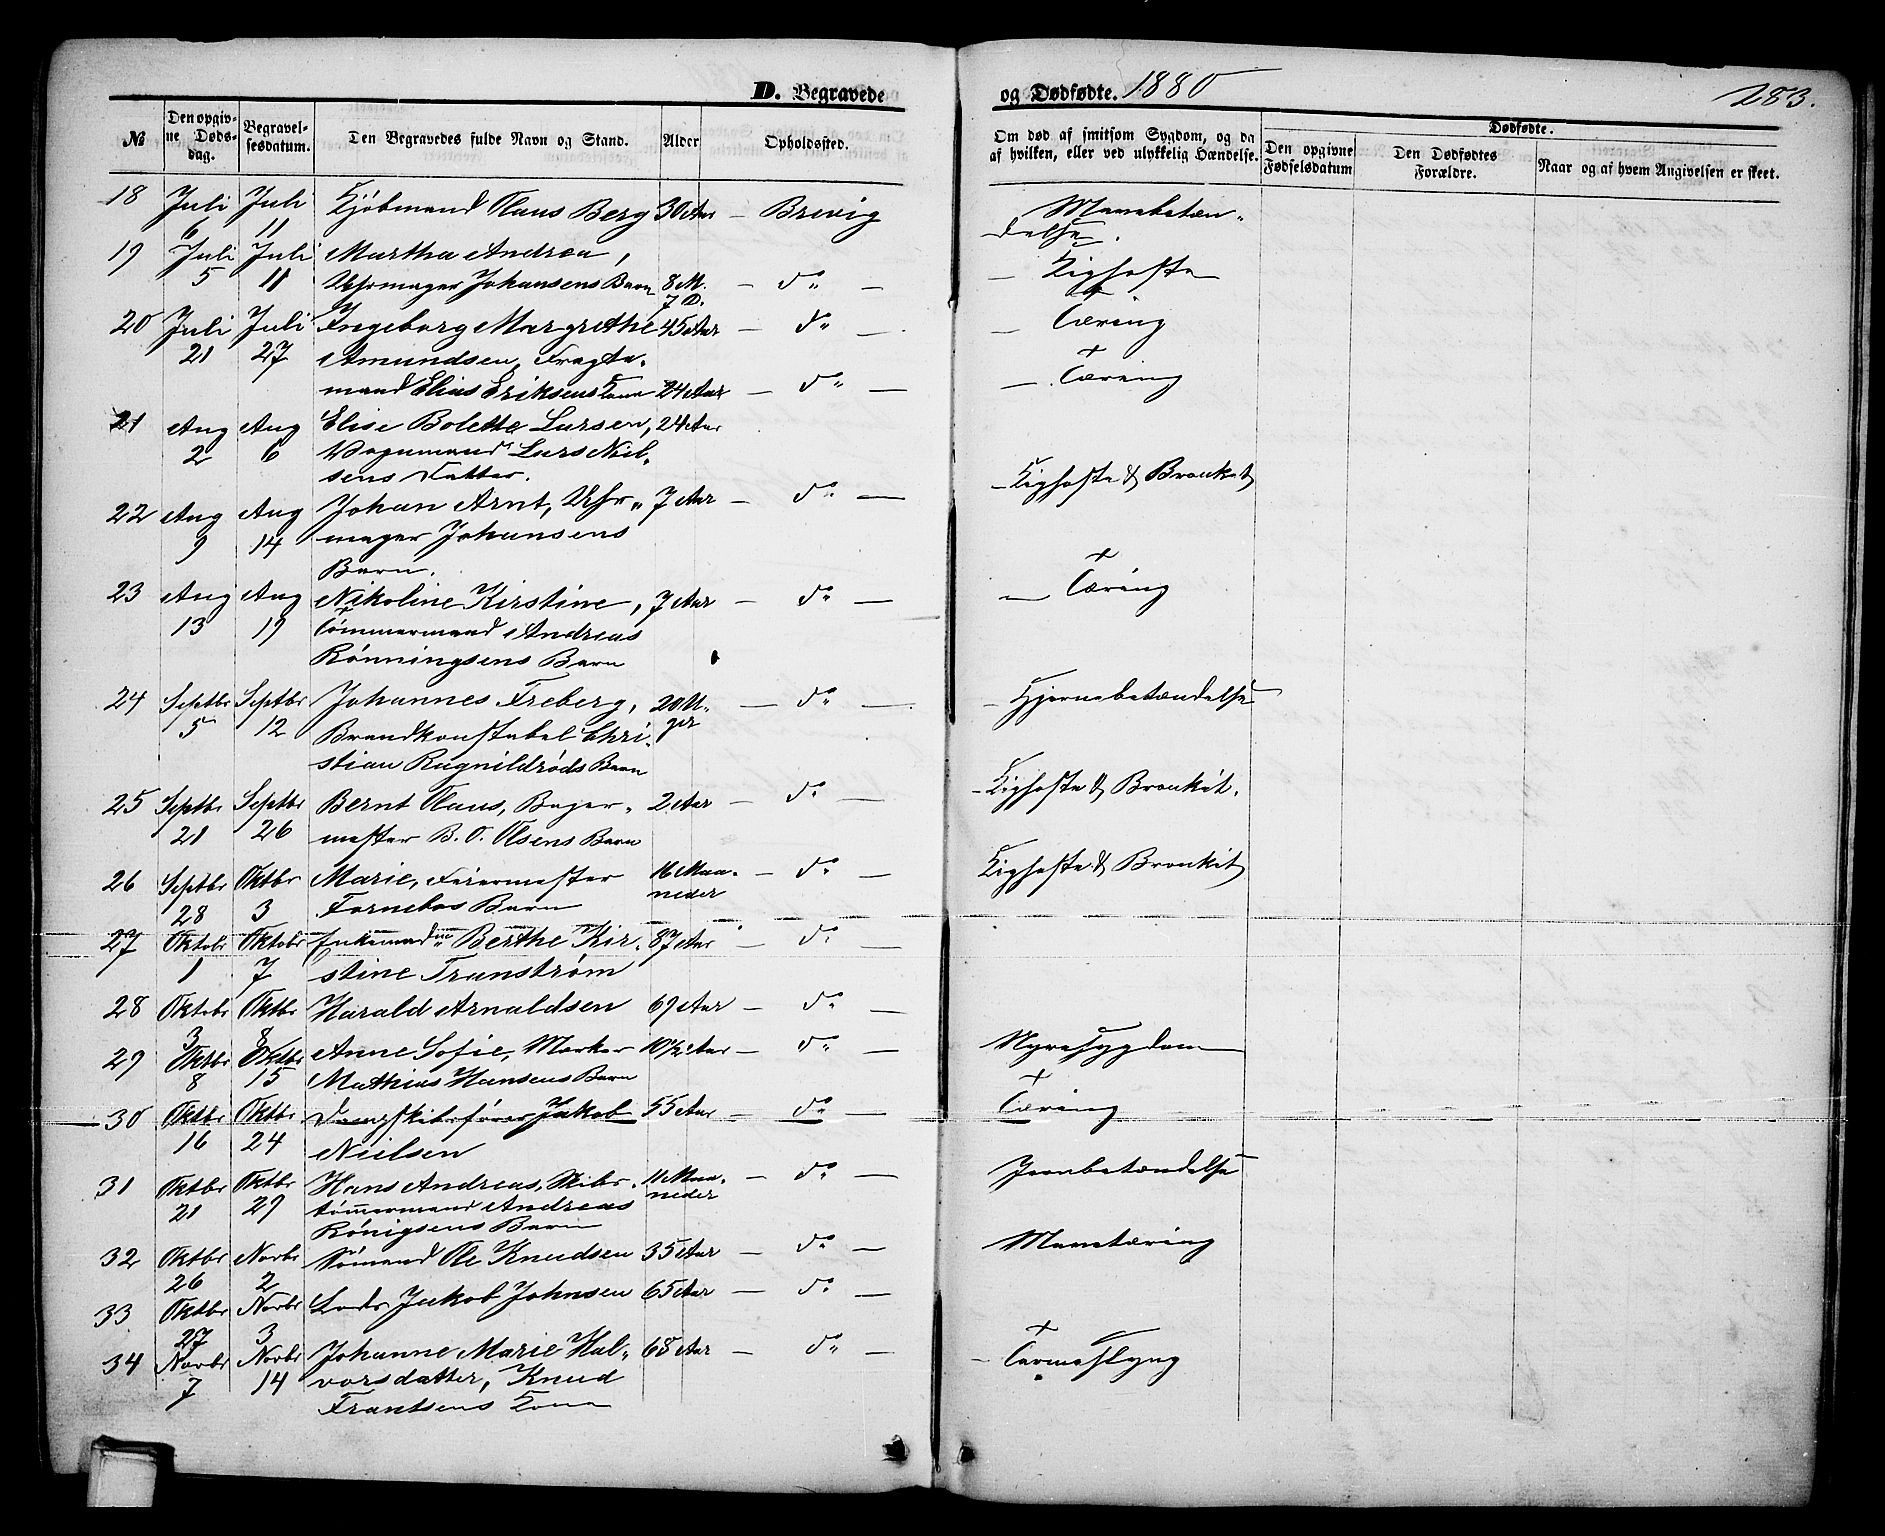 D. Begravede og Dødfødte. 1880 283.
№ Den opgivne Dødsdag. Begravelsesdatum. Den Begravedes fulde Navn og Stand. Alder Opholdssted. Om død af smitsom Sygdom, og da af hvilken, eller ved ulykkelig Hændelse. Dødfødte. Den opgivne Fødselsdatum Den Dødfødtes Forældre. Naar og af hvem Angivelsen er skeet.
18 Juli Juli Kjøbmand Claus Berg 30 Aar — Brevig Mavebetæn-
6 11 delse.
19 Juli Juli Martha Andrea,
5 11 Uhrmager Johansens Barn 8 M. — do — — Kighoste
7 D.
20 Juli Juli Ingeborg Margrethe 45 Aar — do — — Tæring
21 27 Amundsen, Fragte-
mand Elias Eriksens Kone 24 Aar — do — — Tæring
21 Aug Aug Elise Bolette Larsen, 24 Aar
2 6 Vognmand Lars Niel-
sens Datter.
22 Aug Aug Johan Arnt, Uhr- 7 Aar — do — — Kighoste & Bronkit
9 14 mager Johansens
Barn.
23 Aug Aug Nikoline Kirstine, 7 Aar — do — — Tæring
13 19 Tømmermand Andreas
Rønningsens Barn
24 Septbr Septbr Johannes Freberg, 20 U- — do — — Hjernebetændelse
5 12 Brandkonstabel Chri- ger
stian Ragnildrøds Barn
25 Septbr Septbr Bernt Claus, Bager- 2 Aar — do — — Kighoste & Bronkit.
21 26 mester B. O. Olsens Barn
26 Septbr Oktbr Marie, Feiermester 16 Maa- — do — Kighoste & Bronkit
28 3 Fornebos Barn neder
27 Oktobr Oktobr Enkemad Berthe Kir- 87 Aar — do —
1 7 stine Transtrøm
28 Oktobr Oktbr Harald Arnaldsen 69 Aar — do —
3 8
29 Oktbr Oktbr Anne Sofie, Mærker 10½ Aar — do — Nyresygdom
8 15 Mathias Hansens Barn
30 Oktbr Oktbr Dampskibsfører Jakob 55 Aar — do — Tæring
16 24 Nielsen
31 Oktbr Oktbr Hans Andreas, Skibs- 11 Maa- — do — Jernbetændelse
21 29 tømmermand Andreas neder
Rønigsens Barn
32 Oktbr Novbr Sømand Ole Knudsen 35 Aar — do — Mavetæring
26 2
33 Oktbr Novbr Lods Jakob Johnsen 65 Aar — do —
27 3
34 Novbr Novbr Johanne Marie Hal- 68 Aar — do — — Tarmeslyng
7 14 vorsdatter, Knud
Frantsens Kone